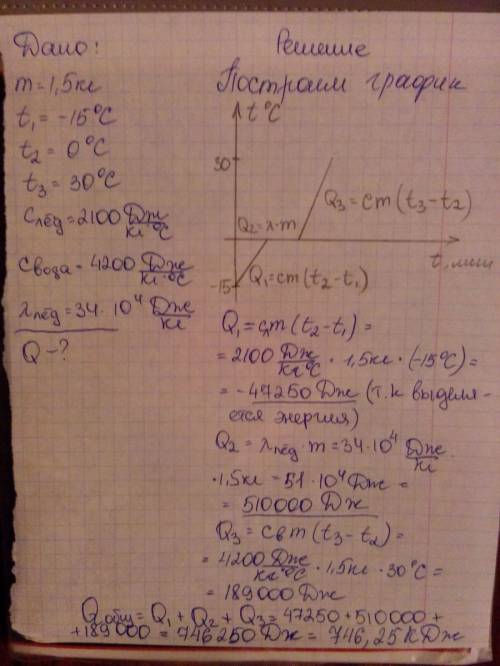 Дано:
m = 1,5 кг
t₁ = -15°C
t₂ = 0°C
t₃ = 30°C
Cлёд = 2100 Дж/кг°C
Cвода = 4200 Дж/кг·°C
λлёд = 34·10⁴ Дж/кг
Q - ?
Решение
Построим график
t°C
30
Q₃ = cm(t₃-t₂)
Q₂ = λ·m
t, мин
-15
Q₁ = cm(t₂-t₁)
Q₁ = cлm(t₂-t₁) =
= 2100 Дж/кг°C · 1,5кг · (-15°C) =
= -47250 Дж (т.к выделя-
ется энергия)
Q₂ = λлёд · m = 34·10⁴ Дж/кг
·1,5кг = 51·10⁴ Дж =
= 510000 Дж
Q₃ = cвm(t₃-t₂) =
= 4200 Дж/кг·°C · 1,5кг · 30°C =
= 189000 Дж
Qобщ = Q₁ + Q₂ + Q₃ = 47250 + 510000 +
+189000 = 746250 Дж = 746,25 кДж